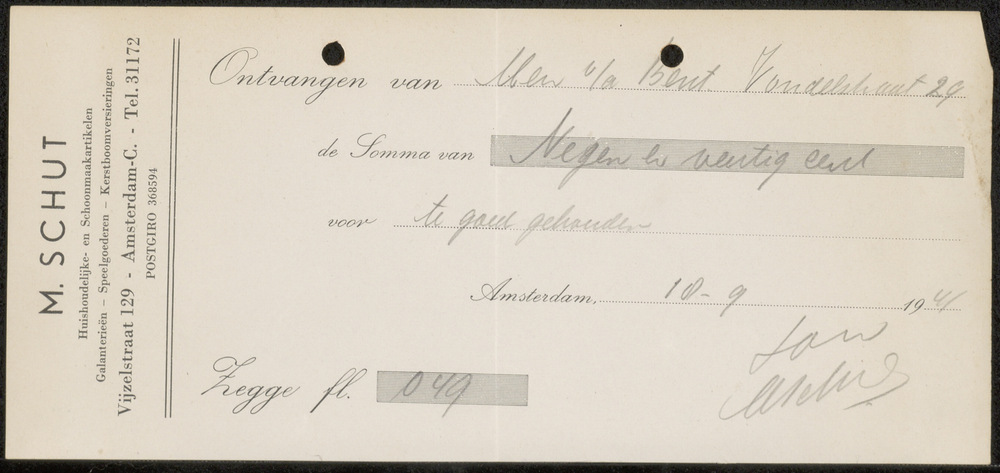 M. SCHUT
Huishoudelijke- en Schoonmaakartikelen
Galanterieën – Speelgoederen – Kerstboomversieringen
Vijzelstraat 129 - Amsterdam-C. - Tel. 31172
POSTGIRO 368594
Ontvangen van v/d Bent. Vondelstraat 29
de Somma van Negen en veertig cent
voor te goed gehouden
Amsterdam, 18-9 1941
Zegge fl. 049